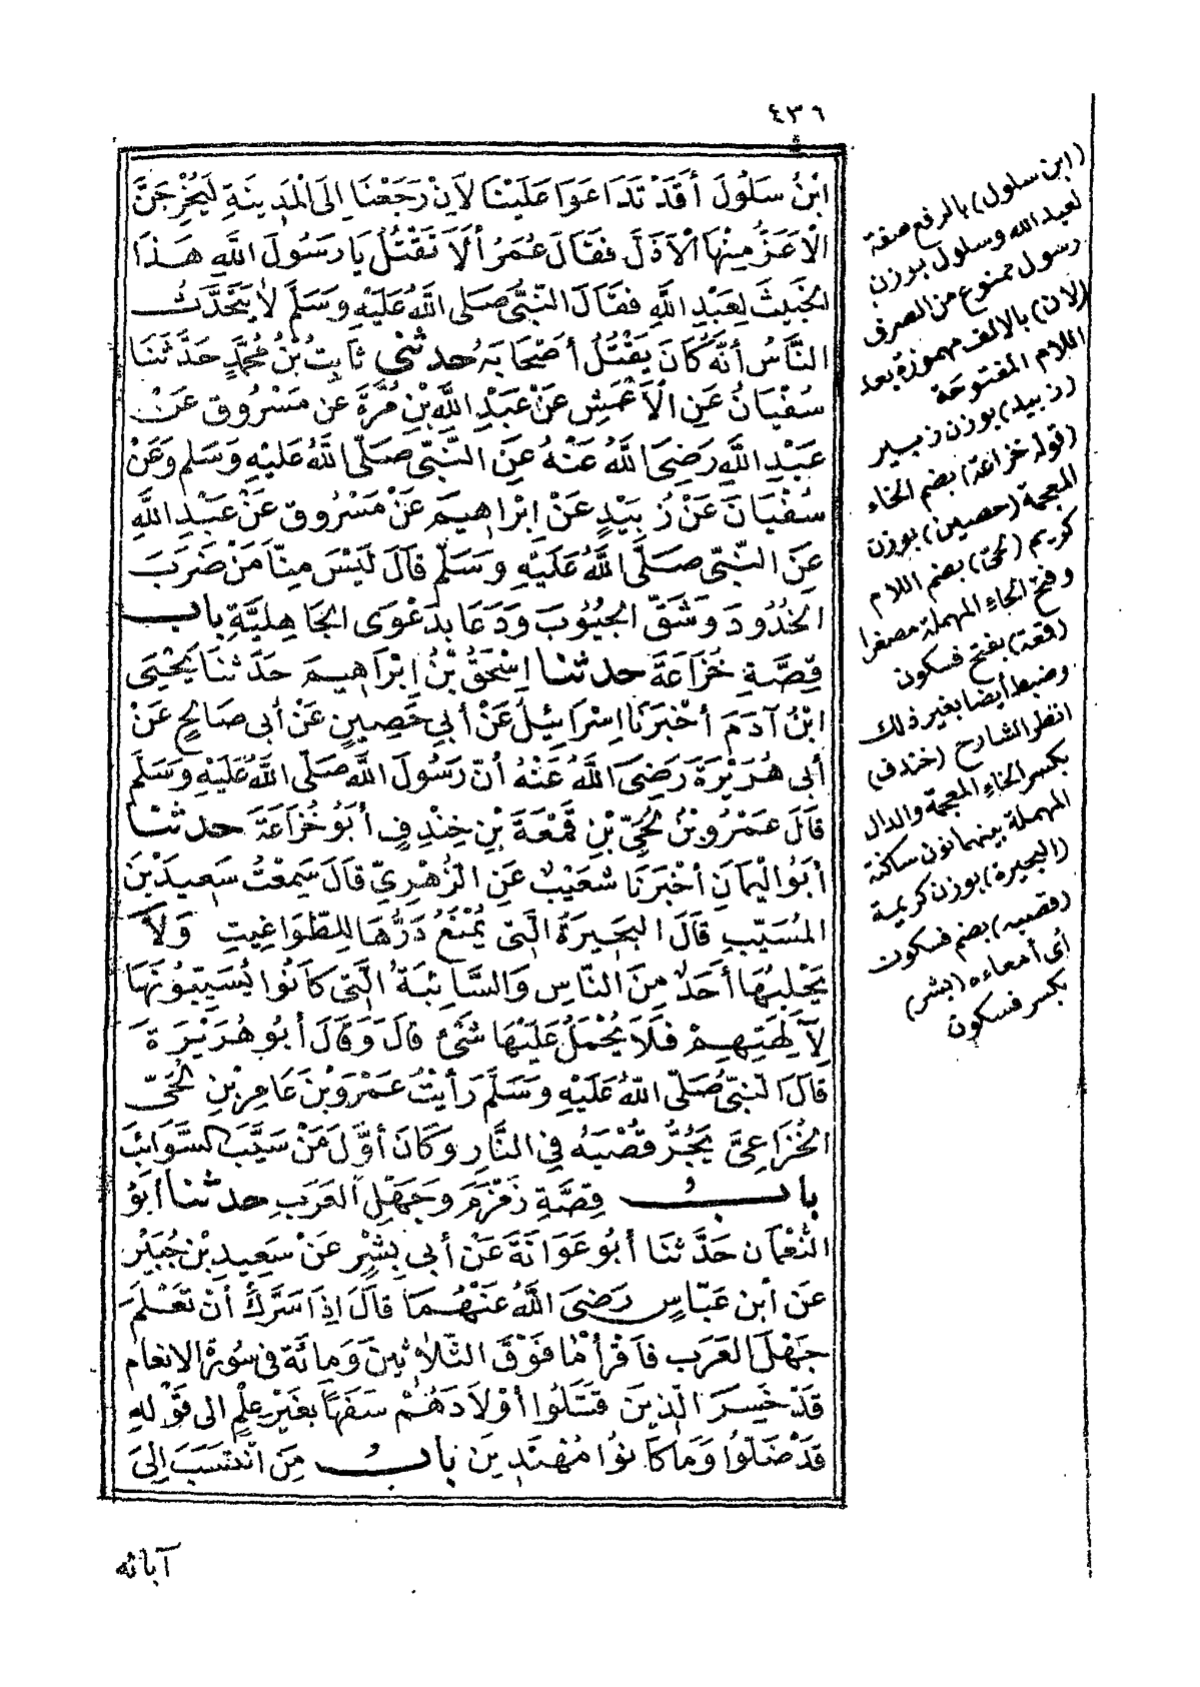 ٤٣٦
ابْنُ سَلُولَ أَقَدْ تَدَاعَوَا عَلَيْنَا لَأِنْ رَجَعْنَا إِلَى الْمَدِينَةِ لَيُخْرِجَنَّ
الْاَعَزُّ مِنْهَا الْاَذَلَّ فَقَالَ عُمَرُ أَلَا نَقْتُلُ يَا رَسُولَ اللَّهِ هَذَا
الْخَبِيثَ لِعَبْدِ اللَّهِ فَقَالَ النَّبِيُّ صَلى اللَّهُ عَلَيْهِ وَسَلَّمَ لَا يَتَحَدَّثُ
النَّاسُ أَنَّهُ كَانَ يَقْتُلُ أَصْحَابَهُ حدثنى ثَابِتُ بْنُ مُحَمَّدٍ حَدَّثَنَا
سُفْيَانُ عَنِ الْاَعْمَشِ عَنْ عَبْدِ اللَّهِ بْنِ مُرَّةَ عَن مَسْرُوقٍ عَنْ
عَبْدِ اللَّهِ رَضِيَ اللَّهُ عَنْهُ عَنِ النَّبِيِّ صَلَّى اللَّهُ عَلَيْهِ وَسَلم وَعَنْ
سُفْيَانَ عَنْ زُبَيْدٍ عَنْ إِبْرَاهِيمَ عَنْ مَسْرُوقٍ عَنْ عَبْدِ اللَّهِ
عَنِ النَّبِيِّ صَلَّى اللَّهُ عَلَيْهِ وَسَلَّمَ قَالَ لَيْسَ مِنَّا مَنْ ضَرَبَ
الْخُدُودَ وَشَقَّ الْجُيُوبَ وَدَعَا بِدَعْوَى الْجَاهِلِيَّةِ باب
قِصَّةِ خُزَاعَةَ حدثنا إِسْحَقُ بْنُ إِبْرَاهِيمَ حَدَّثَنَا يَحْيَى
ابْنُ آدَمَ أَخْبَرَنَا اِسْرَائِيلُ عَنْ أَبِي حَصِينٍ عَنْ أَبي صَالِحٍ عَنْ
أَبى هُرَيْرَةَ رَضِيَ اللَّهُ عَنْهُ أَنّ رَسُولَ اللَّهِ صَلّى اللَّهُ عَلَيْهِ وَسَلَّمَ
قَالَ عَمْرُو بْنُ لُحَيِّ بْنِ قَمْعَةَ بْنِ خِنْدِفٍ أَبُو خُزَاعَةَ حدثنا
أَبَوُ الْيَمَانِ أَخْبَرَنَا شُعَيْبٌ عَنِ الزُّهْرِيِّ قَالَ سَمِعْتُ سَعِيدَ بْنَ
الْمُسَيّبِ قَالَ الْبَحِيرَةُ الَّتِي يُمْنَعُ دَرُّهَا لِلطَّوَاغِيتِ وَلَا
يَحْلِبُهَا أَحَدٌ مِنَ النَّاسِ وَالسَّائِبَةُ الَّتِي كَانُوا يُسَيّبُونَهَا
لِآلِهَتِهِمْ فَلَا يُحْمَلُ عَلَيْهَا شَيْءٌ قَالَ وَقَالَ أَبُو هُرَيْرَةَ
قَالَ النَّبِيُّ صَلّى اللَّهُ عَلَيْهِ وَسَلَّمَ رَأَيْتُ عَمْرَو بْنَ عَامِرِ بْنِ لُحَيّ
الْخُزَاعِيَّ يَجُرُّ قُصْبَهُ فِي النَّارِ وَكَانَ أَوَّلَ مَنْ سَيَّبَ السَّوَائِبَ
بابُ قِصَّةِ زَمْزَمَ وَجَهْلِ الْعَرَبِ حدثنا أَبُو
النُّعْمَان حَدَّثَنَا أَبُو عَوَانَةَ عَنْ أَبى بِشْرٍ عَنْ سَعِيدِ بْنِ جُبَيْرٍ
عَن أبن عَبّاسٍ رَضِيَ اللَّهُ عَنْهُمَا قَالَ إِذَا سَرَّكَ أَنْ تَعْلَمَ
جَهْلَ الْعَرَبِ فَاقْرَأْ مَا فَوْقَ الثَّلَاثِينَ وَمِائَةَ في سُورَةِ الانعام
قَدْ خَسِرَ الَّذِينَ قَتَلُوا أَوْلَادَهُمْ سَفَهًا بِغَيْرِ عِلْمٍ الى قَوْلِهِ
قَدْ ضَلّوُا وَمَا كَانُوا مُهْتَدِينَ بابُ مَنِ انْتَسَبَ إِلَى
آبائه
(ابن سلول) بالرفع صفة
لعبد الله وسلول بوزن
رسول ممنوع من الصرف
(لان) بالالف مهموزة بعد
اللام المفتوحة
(زبيد) بوزن زبير
(قوله خزاعة) بضم الخاء
المعجمة (حصين) بوزن
كريم (لحى) بضم اللام
وفتح الحاء المهملة مصغرا
(قمعة) بفتح فسكون
وضبط أيضا بغير ذلك
انظر الشارح (خندف)
بكسر الخاء المعجمة والدال
المهملة بينهما نون ساكنة
(البحيرة) بوزن كريمة
(قصبه) بضم فسكون
أى أمعاءه (بشر)
بكسر فسكون